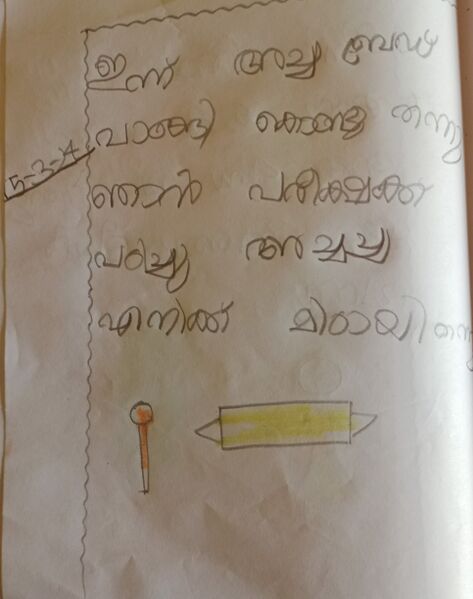 ഇന്ന് അച്ച ബേഡ്
വാങ്ങി കൊണ്ടു തന്നു
5-3-24
ഞാൻ പരീക്ഷക്ക്
പഠിച്ചു അച്ചച്ച
എനിക്ക് മിഠായി തന്നു